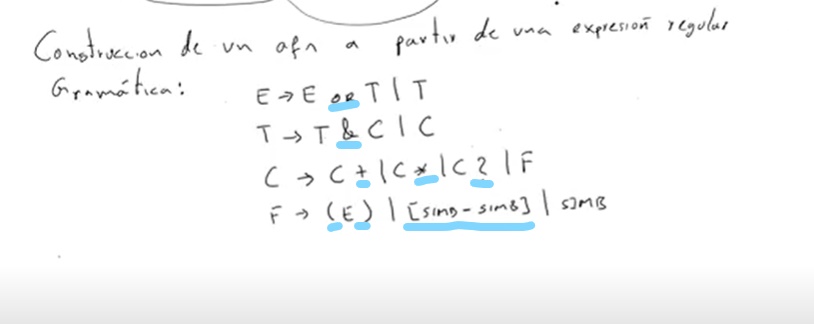 Construccion de un afn a partir de una expresión regular
Gramática:
E → E or T | T
T → T & C | C
C → C + | C * | C ? | F
F → (E) | [SIMB - SIMB] | SIMB